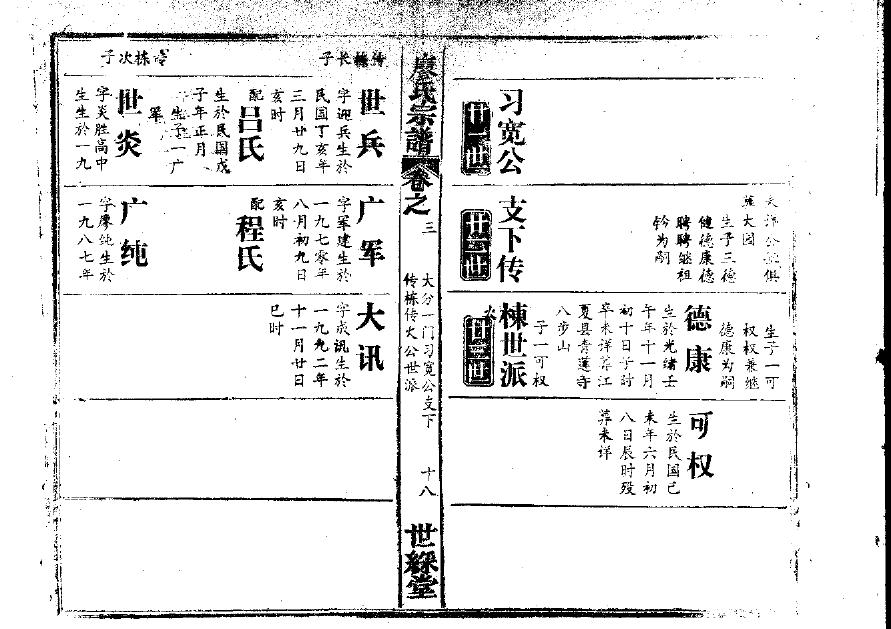 习宽公
廿一世
支下传
廿二世
栋世派
廿三世
大园
生子三德
健德康德
聘聘继祖
钤为嗣
生子一可
权权兼继
德康为嗣
德康
生於光绪壬
午年十一月
初十日子时
卒未详葬江
夏县青莲寺
八步山
子一可权
可权
生於民国己
未年六月初
八日辰时殁
葬未详
廖氏宗譜
卷之
三
大分一门习宽公支下
传栋传火公世派
十八
世綵堂
传栋长子
世兵
字迎兵生於
民国丁亥年
三月廿九日
亥时
配
吕氏
生於民国戊
子年正月
生子一广
军
栋次子
世炎
字炎胜高中
生生於一九
广军
字军建生於
一九七零年
八月初九日
亥时
配
程氏
广纯
字廖纯生於
一九八七年
大讯
字成讯生於
一九九二年
十一月廿日
巳时